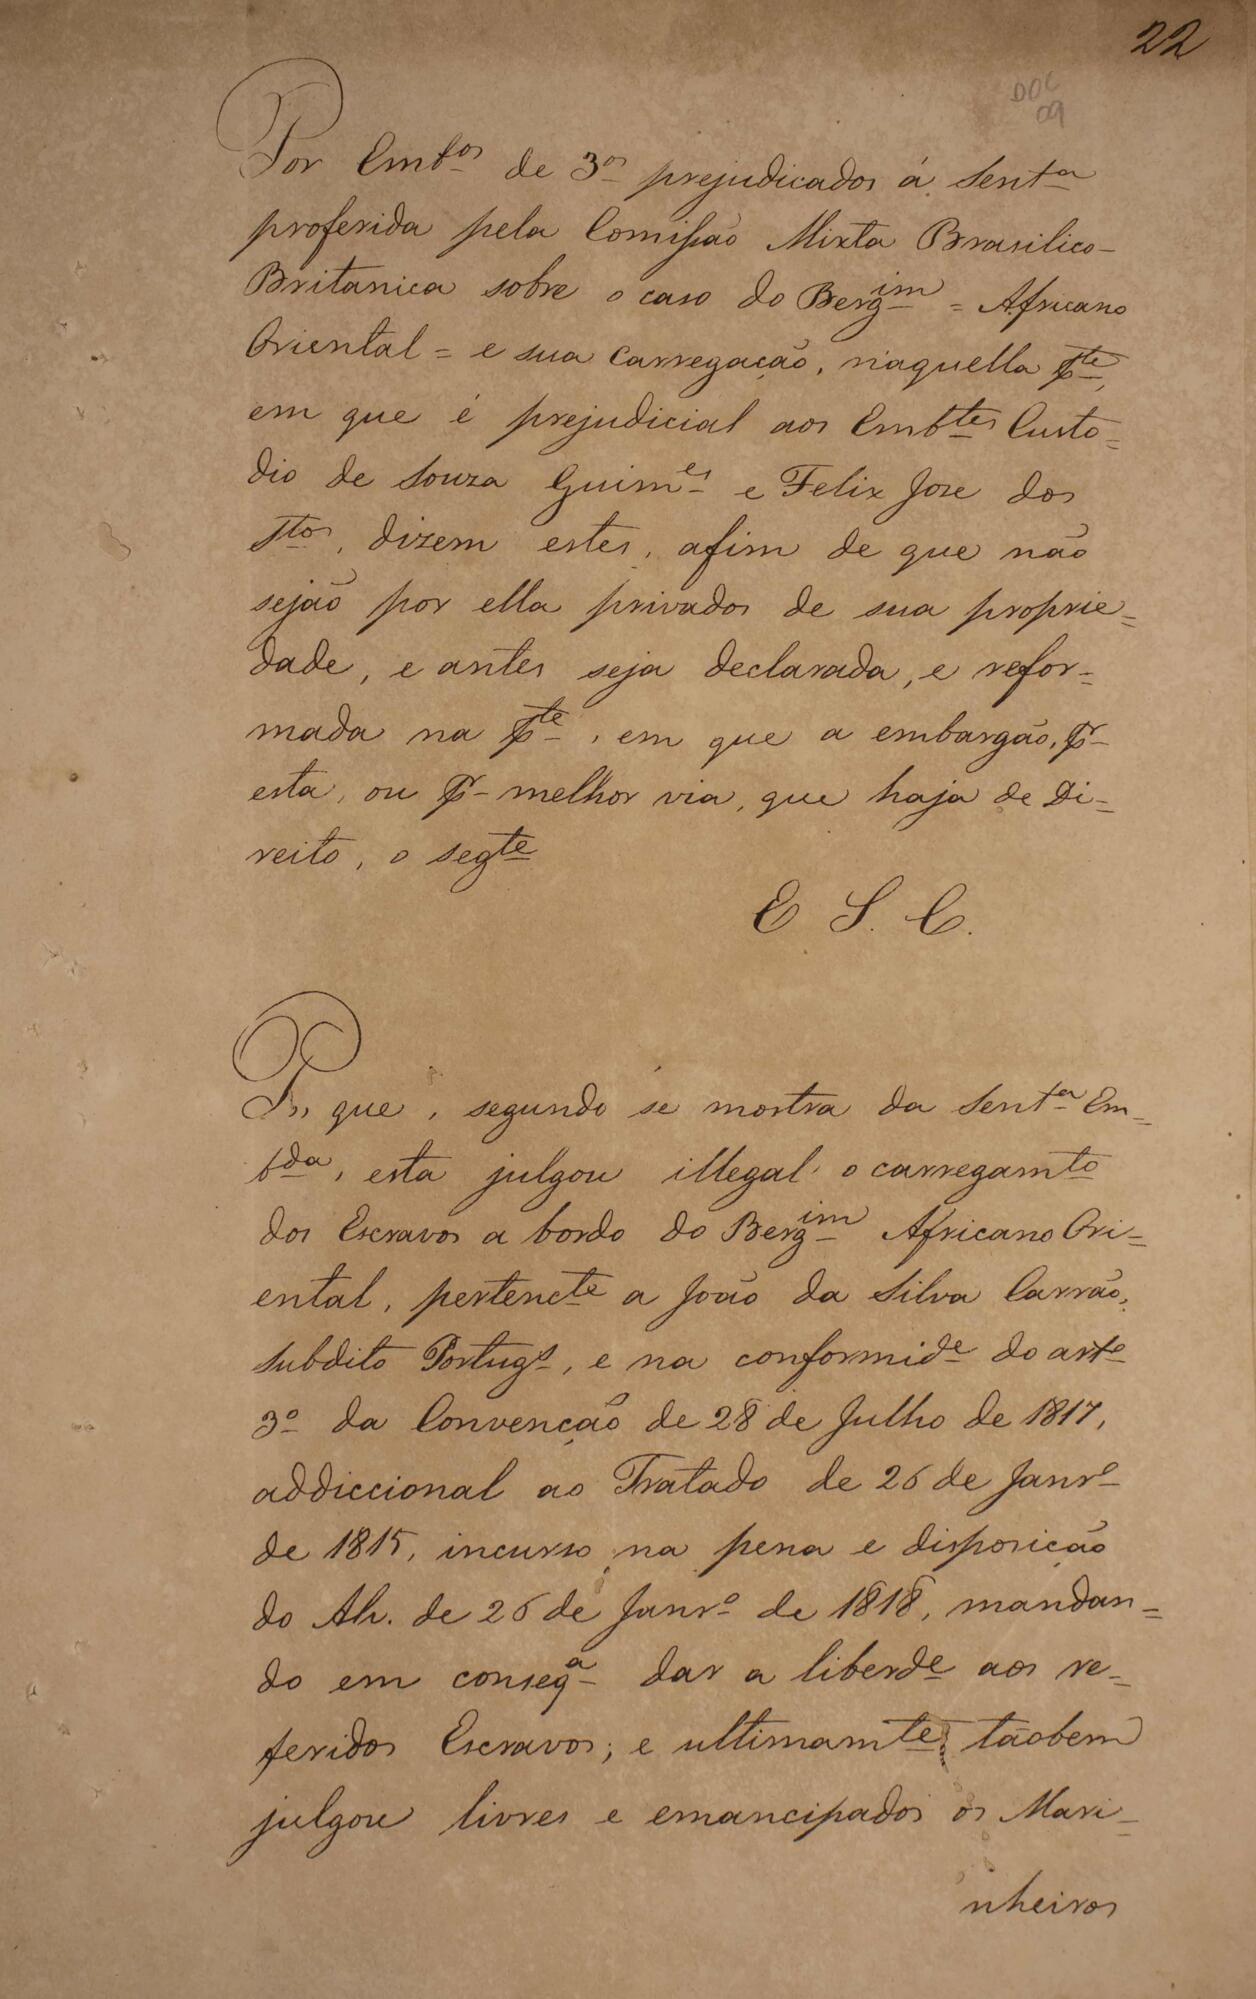 22
DOC
09
Por Emb.os de 3.os prejudicados á Sent.a
proferida pela Comissão Mixta Brasilico-
Britanica sobre o caso do Berg.im = Africano
Oriental = e sua carregação, n'aquella p.te,
em que é prejudicial aos Emb.tes Custo=
dio de Souza Guim.es e Felix Jose dos
S.tos, dizem estes, afim de que não
sejão por ella privados de sua proprie=
dade, e antes seja declarada, e refor=
mada na p.te, em que a embargão, p.r
esta, ou p.r melhor via, que haja de Di=
reito, o seg.te
E S. C.
P. que, segundo se mostra da Sent.a Em=
b.da, esta julgou illegal o carregam.to
dos Escravos a bordo do Berg.im Africano Ori=
ental, pertenc.te a João da Silva Carrão,
subdito Portug.s, e na conformid.e do art.o
3.o da Convenção de 28 de Julho de 1817,
addiccional ao Tratado de 26 de Janr.o
de 1815, incurso na pena e disposição
do Alv. de 26 de Janr.o de 1818, mandan=
do em conseq.a dar a liberd.e aos re=
feridos Escravos; e ultimam.te tãobem
julgou livres e emancipados os Mari=
nheiros